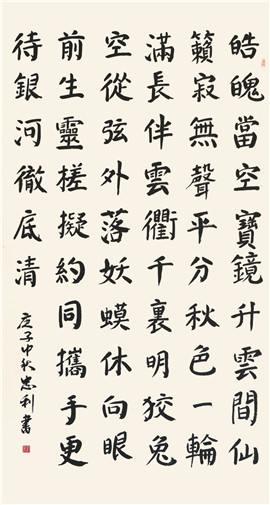 皓魄當空寶鏡升雲間仙
籟寂無聲平分秋色一輪
滿長伴雲衢千裏明狡兔
空從弦外落妖蟆休向眼
前生靈槎擬約同攜手更
待銀河徹底清
庚子中秋忠利書